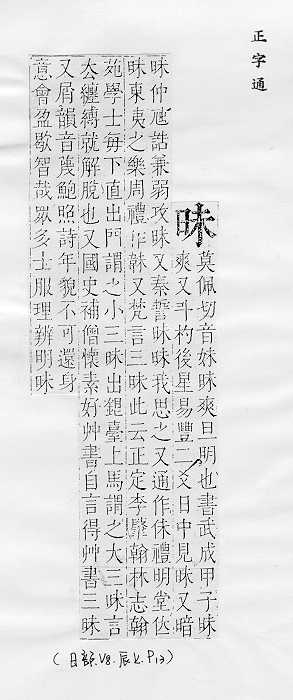 正字通
昧
莫佩切音妹昧爽旦明也書武成甲子昧
爽又斗杓後星易豐二爻日中見昧又暗
昧仲虺誥兼弱攻昧又秦誓昧昧我思之又通作佅禮明堂位
昧東夷之樂周禮作韎又梵言三昧此云正定李肈翰林志翰
苑學士每下直出門謂之小三昧出銀臺上馬謂之大三昧言
去纏縛就解脫也又國史補僧懷素好艸書自言得艸書三昧
又屑韻音蔑鮑照詩年貌不可還身
意會盈歇智哉眾多士服理辨明昧
(日部.V8.辰上.P13)